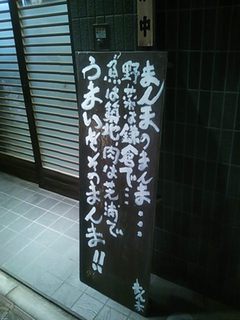 中
まんまのまんま・・・
野菜は鎌倉で・・・
魚は築地、肉は芝浦で
うまいぞそうまんま!!